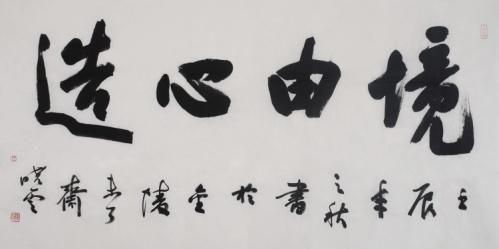 境由心造
壬辰年之秋書於金陵未了齋
曉雲